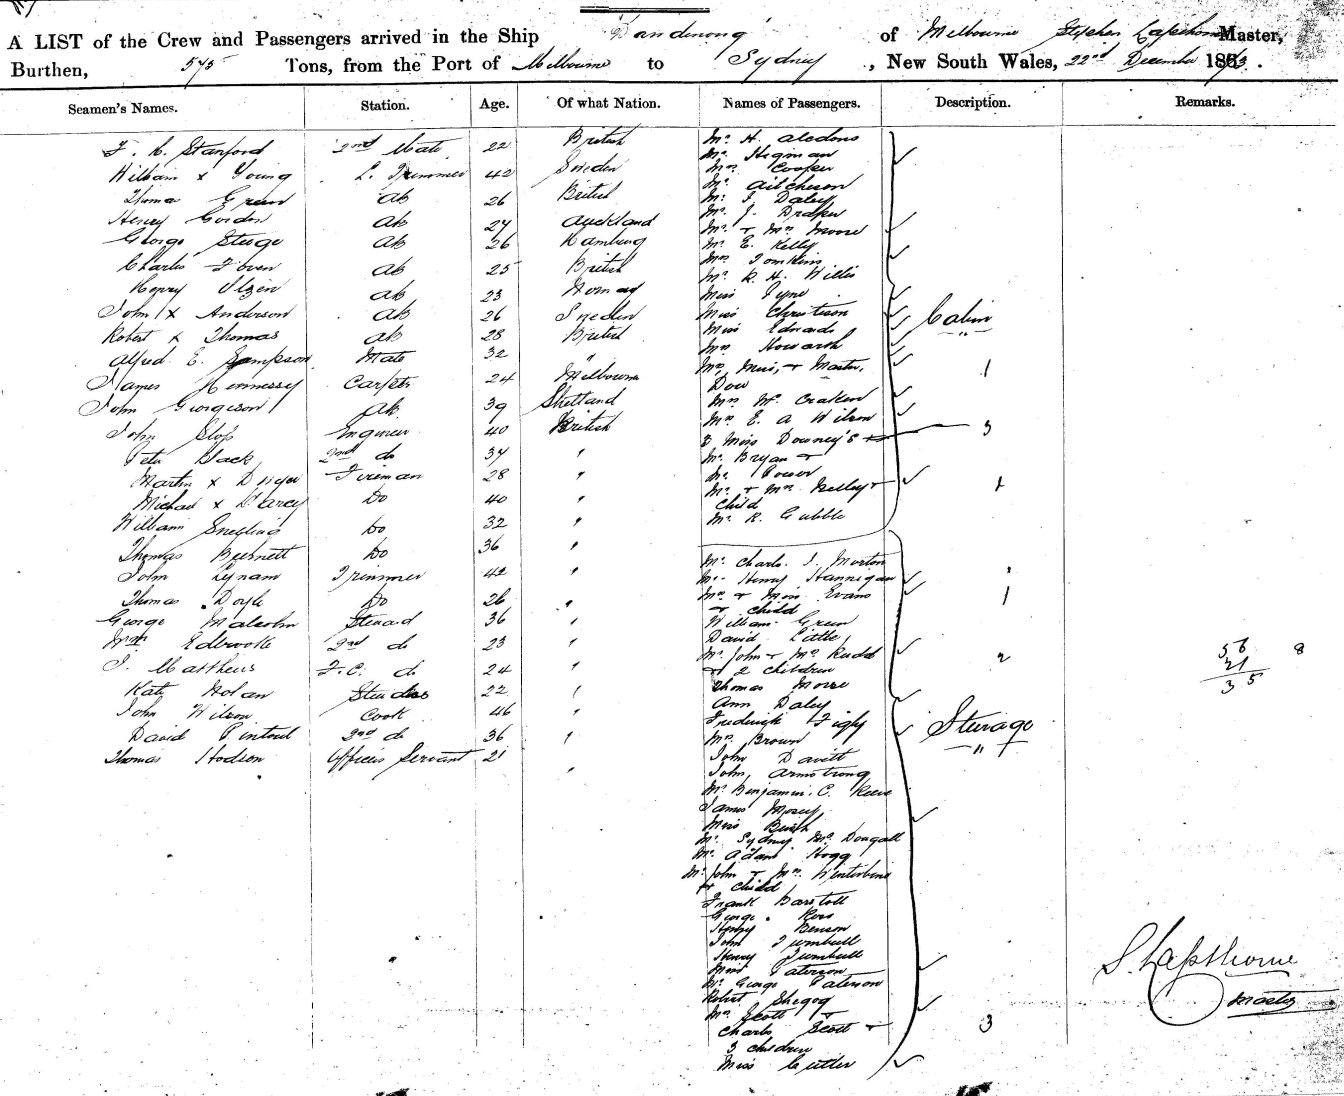 A LIST of the Crew and Passengers arrived in the Ship Dandenong of Melbourne Stephen Lapsthorne Master,
Burthen, 575 Tons, from the Port of Melbourne to Sydney, New South Wales, 22nd December 1873.
Seamen's Names. Station. Age. Of what Nation. Names of Passengers. Description. Remarks.
Stanford 2nd Mate 22 British
William x Young L. Trimmer 42 Sweden
Thomas Green AB 26 British
Henry Gordon AB 27 Auckland
George Sturge AB 26 Hamburg
Charles AB 25 British
Henry Olzen AB 23 Norway
John x Anderson AB 26 Sweden
Robert x Thomas AB 28 British
Alfred E. Sampson Mate 32 "
James Hennessy Carptr 24 Melbourne
John Georgeson AB 39 Shetland
John Slop Engineer 40 British
Peter Black 2nd do 34 "
Martin x Dwyer Fireman 28 "
Michael x D'arcy Do 40 "
William Snelling Do 32 "
Thomas Burnett Do 36 "
John Lynam Trimmer 42 "
Thomas Doyle Do 26 "
George Malcolm Steward 36 "
Wm Edbrooke 2nd do 23 "
J. Matthews F.C. do 24 "
Kate Nolan Stewdss 22 "
John Wilson Cook 46 "
David Pintoul 2nd do 36 "
Thomas Hodson Officers Servant 21 "
Mr H.
Mr Hegman
Mrs Cooper
Mr Aitcheson
Mr J. Daley
Mr J. Draper
Mr & Mrs Moore
Mr E. Kelly
Mrs Tomkins
Mr R. H. Willis
Miss Tyne
Miss Christison
Miss Edwards
Mrs Howarth
Mrs, Miss, & Master,
Dow
Mrs McCraken
Mrs E. A Wilson
3 Miss Downey's
Mr Bryan &
Mr Power
Mr & Mrs Kelley &
child
Mr R. Gubble
Cabin
" "
1
3
1
Mr Charls. J. Morton
Mr Henry Hannigan
Mrs & Miss Evans
& child
William Green
David Little
Mr John & Mrs Rudd
& 2 children
Thomas Morse
Ann Daley
Frederick Figly
Mrs Brown
John Davitt
John Armstrong
Mr Benjamin. C. Reeve
James Morey
Miss Birch
Mr Sydney McDougall
Mr Adam Hogg
Mr John & Mrs Winterbine
& child
Frank Barstoll
George Ross
Henry Benson
John Turnbull
Henry Turnbull
Miss Paterson
Mr George Paterson
Robert Shegog
Mrs Scott &
Charls Scott &
3 children
Miss Cutler
1
2
Steerage
" "
3
56 8
21
35
S. Lapsthorne
Master